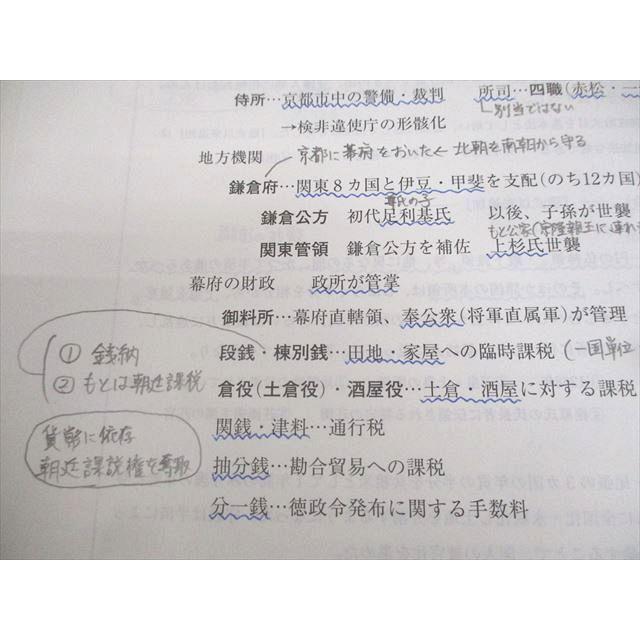 侍所…京都市中の警備・裁判 所司…四職(赤松・一
別当ではない
→検非違使庁の形骸化
地方機関 京都に幕府をおいた← 北朝を南朝から守る
鎌倉府…関東8カ国と伊豆・甲斐を支配(のち12カ国)
尊氏の子
鎌倉公方 初代足利基氏 以後、子孫が世襲
もと公家(常陸親王に連れ
関東管領 鎌倉公方を補佐 上杉氏世襲
幕府の財政 政所が管掌
御料所…幕府直轄領、奉公衆(将軍直属軍)が管理
① 銭納
段銭・棟別銭…田地・家屋への臨時課税 (一国単位
② もとは朝廷課税
倉役(土倉役)・酒屋役…土倉・酒屋に対する課税
貨幣に依存
関銭・津料…通行税
朝廷課税権を奪取
抽分銭…勘合貿易への課税
分一銭…徳政令発布に関する手数料